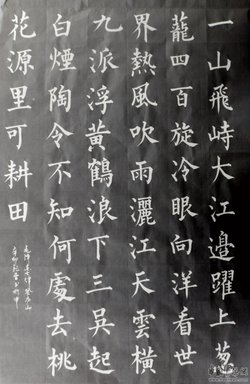 一山飛峙大江邊躍上蔥
蘢四百旋冷眼向洋看世
界熱風吹雨灑江天雲橫
九派浮黃鶴浪下三吳起
白煙陶令不知何處去桃
花源里可耕田